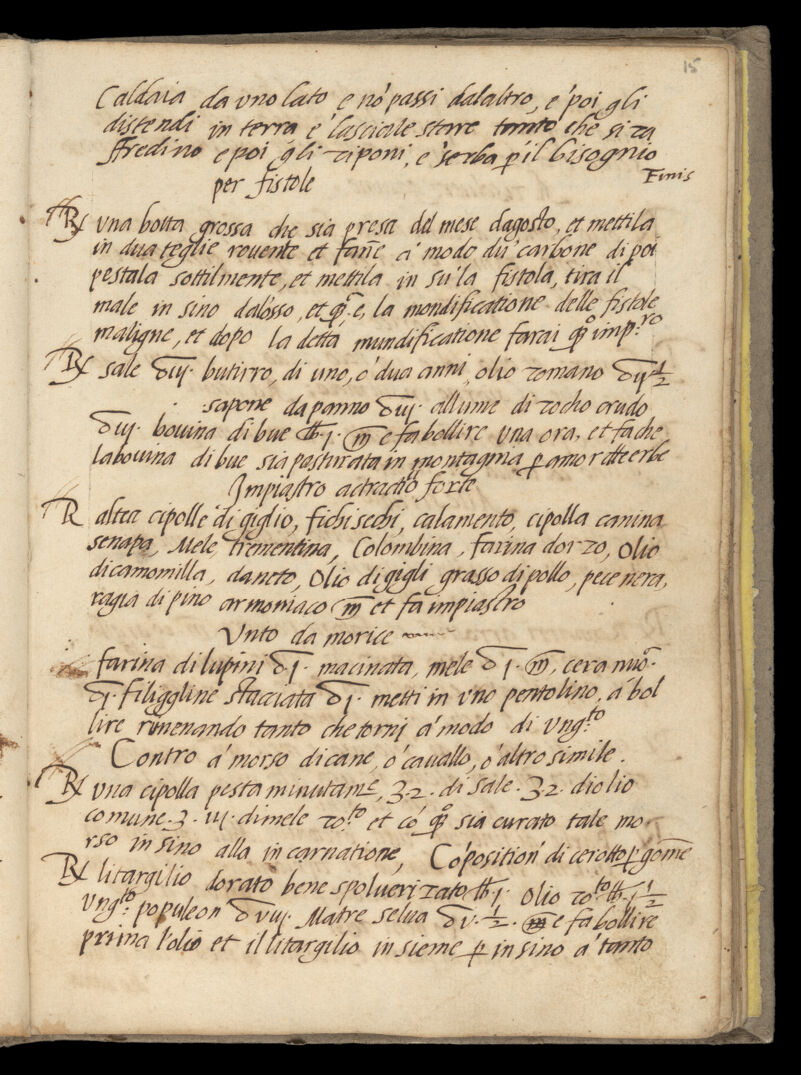 15
Caldaia da vno lato e nō passi dalaltro, e poi gli
distendi in terra e lasciale stare tanto che si ra
ffredino e poi gli riponi, e serba p il bisognio
Finis
per fistole
R vna botta grossa che sia presa del mese dagosto, et mettila
in dua teglie rouente et fanē a modo dū carbone di poi
pestala sottilmente, et mettila in su la fistola, tira il
male in sino dalosso, et q̄ e, la mondificatione delle fistole
maligne, et dopo la detta mundificatione farai qo imp.ro
R sale ʒiij. butirro, di uno, o dua anni, olio romano ʒij 1/2
sapone da panno ʒiij. allume di rocho crudo
ʒiij. bouina di bue lb j. m̄ e fa bollire vna ora, et fa che
la bouina di bue sia pasturata in montagnia p amor dlle erbe
Impiastro actractiō forte
R altea cipolle di giglio, fichi sechi, calamento, cipolla canina
senapa, Mele, trementina, Colombina, farina dorzo, Olio
di camomilla, daneto, Olio di gigli grasso di pollo, pece nera,
ragia di pino armoniaco m̄ et fa impiastro
Vnto da morice
farina di lupini ʒ j. macinata, mele ʒ j. m̄, cera nuō.
ʒj. filiggine stacciata ʒj. metti in vno pentolino, a bol
lire rimenando tanto che torni a modo di vng.to
Contro a morso di cane, o cauallo, o altro simile.
R vna cipolla pesta minutamē, ʒ 2. di sale. ʒ 2. di olio
comune. ʒ. iij. di mele ro.to et cō qo sia curato tale mo
rso in sino alla incarnatione, Cōposition di cerotto p gome
R litargilio dorato bene spoluerizato lb j. Olio ro.to lb. j 1/2
vng.to populeon ʒ viij. Matre selua ʒ v. 1/2. m̄ e fa bollire
prima l'olio et il litargilio insieme p in sino a tanto